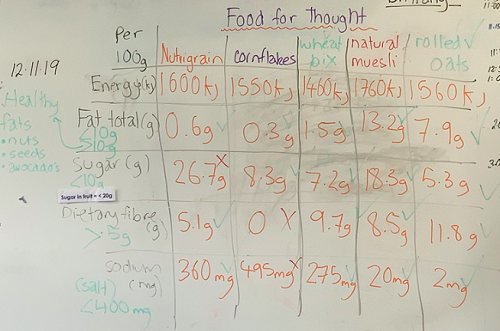 Food for Thought
Per 100g Nutrigrain cornflakes wheat bix natural muesli rolled oats
12.11.19
Energy(kj) 1600kj 1550kj 1460kj 1760kj 1560kj
Fat total(g) 0.6g 0.3g 1.5g 13.2g 7.9g
≤10g
Healthy fats
• nuts
• seeds
• avocado's
Sugar (g) 26.7g 8.3g 7.2g 18.3g 5.3g
<10g
Sugar in fruit = < 20g
Dietary fibre (g) 5.1g 0 9.7g 8.5g 11.8g
>5g
sodium (mg) 360mg 495mg 275mg 20mg 2mg
(salt)
<400mg